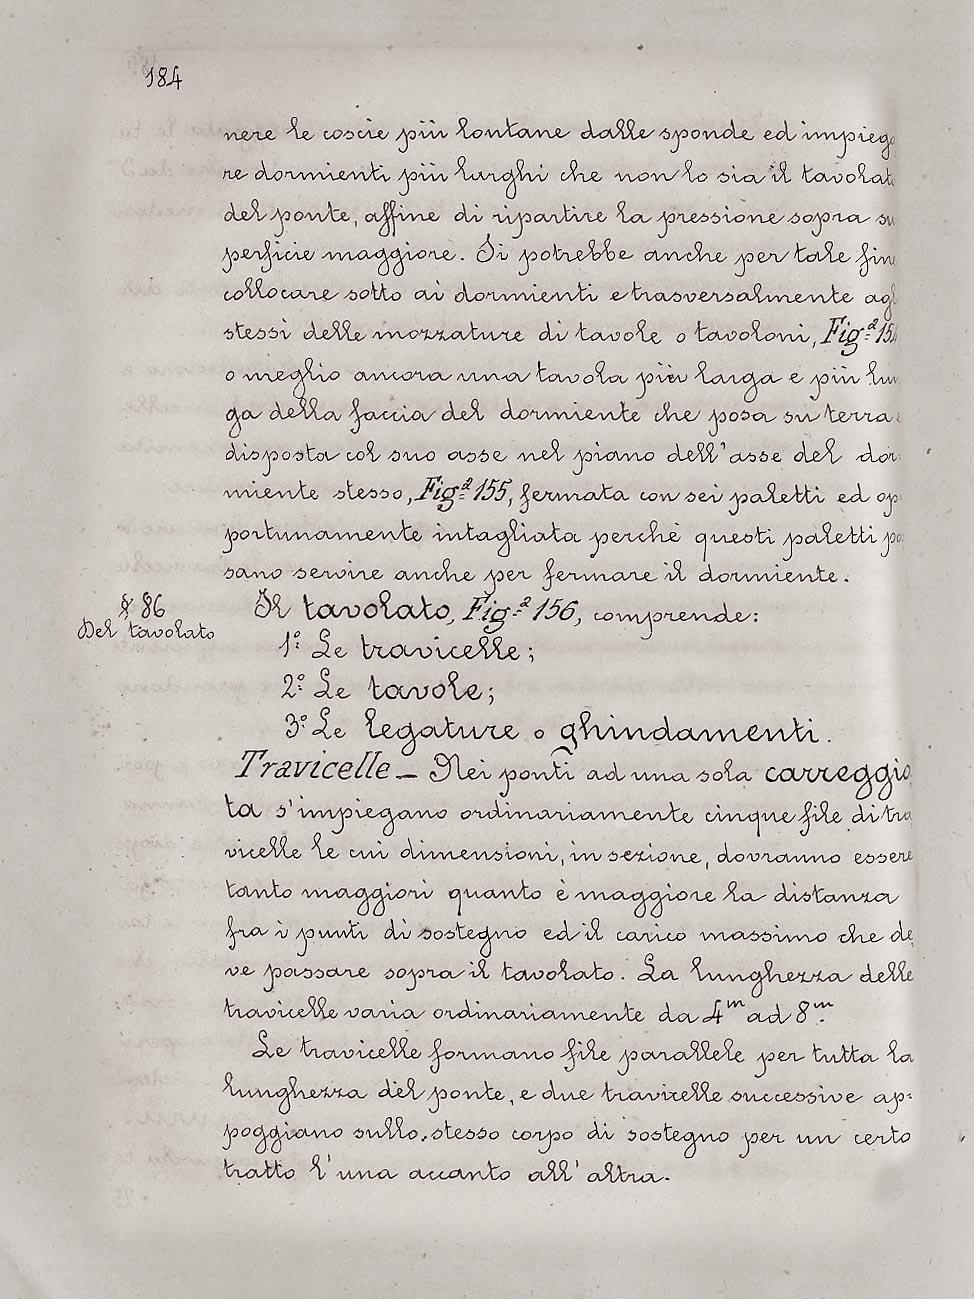 184
nere le coscie più lontane dalle sponde ed impiega
re dormienti più larghi che non lo sia il tavolato
del ponte, affine di ripartire la pressione sopra su
perficie maggiore. Si potrebbe anche per tale fine
collocare sotto ai dormienti e trasversalmente agl
stessi delle mozzature di tavole o tavoloni, Fig.ª 154
o meglio ancora una tavola più larga e più lun
ga della faccia del dormiente che posa su terra e
disposta col suo asse nel piano dell'asse del dor:
miente stesso, Fig.ª 155, fermata con sei paletti ed op:
portunamente intagliata perchè questi paletti pos
sano servire anche per fermare il dormiente.
§ 86
Del tavolato
Il tavolato, Fig.ª 156, comprende:
1º Le travicelle;
2º Le tavole;
3º Le legature o ghindamenti.
Travicelle — Nei ponti ad una sola carreggia
ta s'impiegano ordinariamente cinque file di tra
vicelle le cui dimensioni, in sezione, dovranno essere
tanto maggiori quanto è maggiore la distanza
fra i punti di sostegno ed il carico massimo che de
ve passare sopra il tavolato. La lunghezza delle
travicelle varia ordinariamente da 4ᵐ ad 8ᵐ.
Le travicelle formano file parallele per tutta la
lunghezza del ponte, e due travicelle successive ap:
poggiano sullo stesso corpo di sostegno per un certo
tratto l'una accanto all'altra.